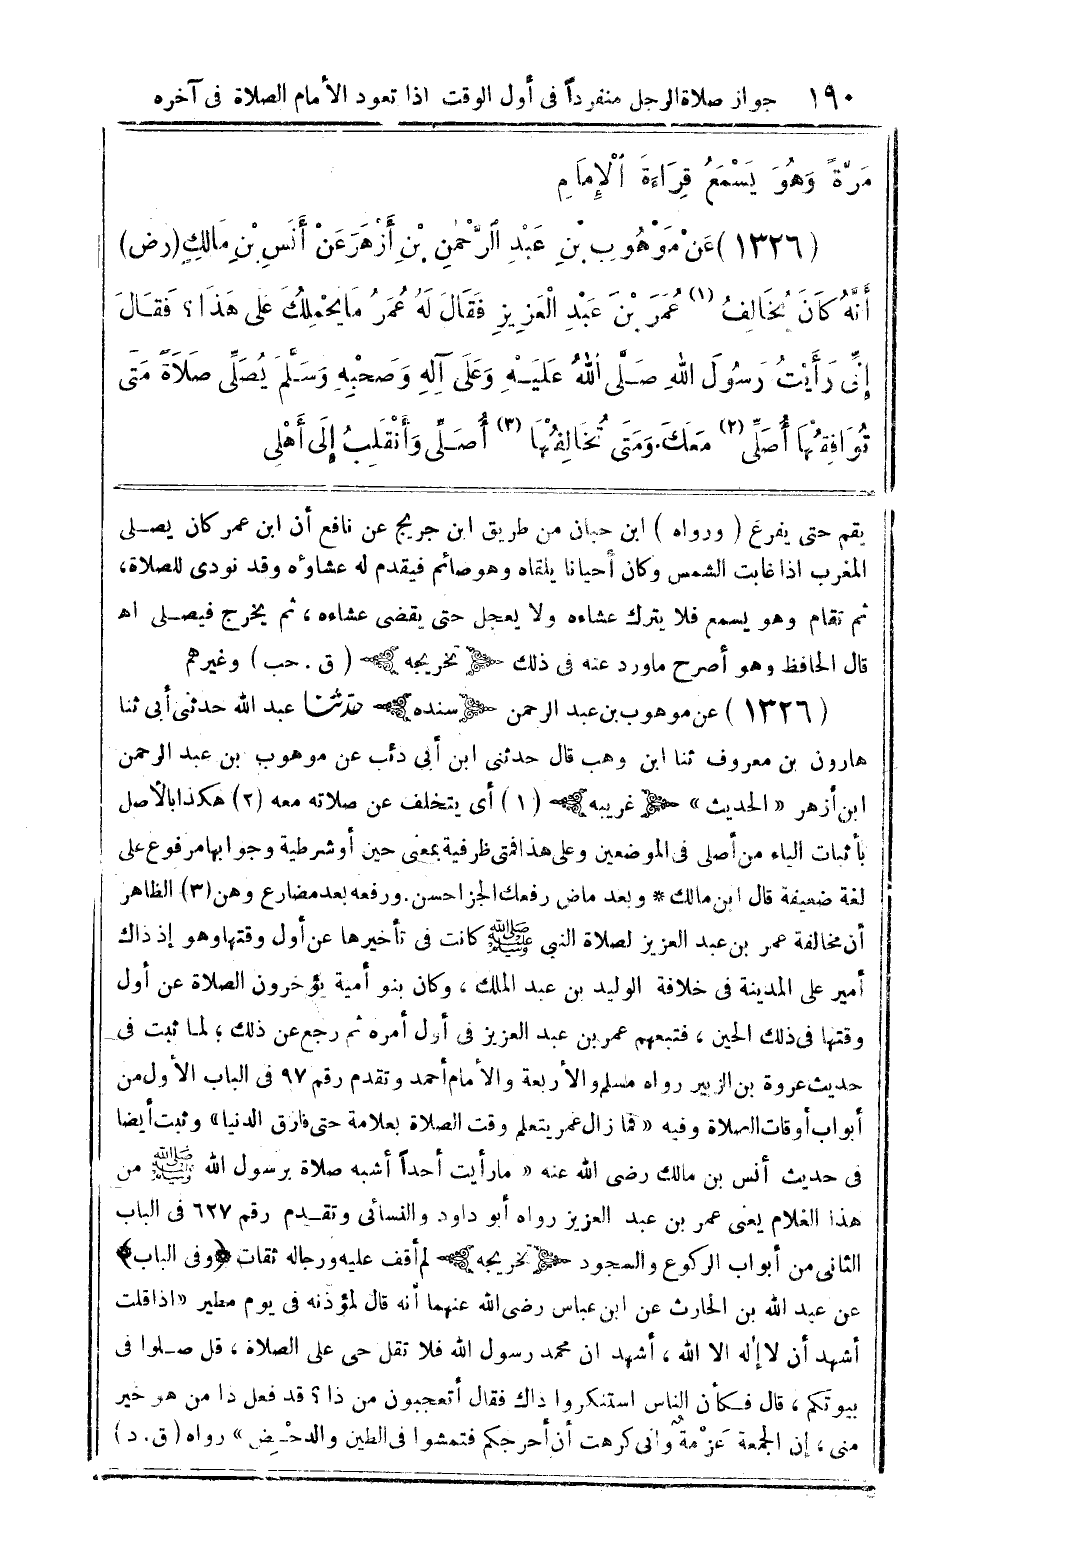 ١٩٠ جواز صلاة الرجل منفرداً فى أول الوقت اذا تعود الأمام الصلاة فى آخره
مَرَّةً وَهُوَ يَسْمَعُ قِرَاءَةَ ٱلْإِمَامِ
(١٣٢٦) عَنْ مَوْهُوبِ بْنِ عَبْدِ ٱلرَّحْمٰنِ بْنِ أَزْهَرَ عَنْ أَنَسِ بْنِ مَالِكٍ (رض)
أَنَّهُ كَانَ يُخَالِفُ (١) عُمَرَ بْنَ عَبْدِ الْعَزِيزِ فَقَالَ لَهُ عُمَرُ مَا يَحْمِلُكَ عَلَى هَذَا؟ فَقَالَ
إِنِّى رَأَيْتُ رَسُولَ اللهِ صَلَّى اللهُ عَلَيْهِ وَعَلَى آلِهِ وَصَحْبِهِ وَسَلَّمَ يُصَلِّى صَلَاةً مَتَى
تُوَافِقُهَا أُصَلِّى (٢) مَعَكَ. وَمَتَى تُخَالِفُهَا (٣) أُصَلِّى وَأَنْقَلِبُ إِلَى أَهْلِى
يقم حتى يفرغ (ورواه) ابن حبان من طريق ابن جريج عن نافع أن ابن عمر كان يصلى
المغرب اذا غابت الشمس وكان أحيانا يلقاه وهو صائم فيقدم له عشاؤه وقد نودى للصلاة،
ثم تقام وهو يسمع فلا يترك عشاءه ولا يعجل حتى يقضى عشاءه ، ثم يخرج فيصلى اهـ
قال الحافظ وهو أصرح ماورد عنه فى ذلك ﴿تخريجه﴾ (ق . حب) وغيرهم
(١٣٢٦) عن موهوب بن عبد الرحمن ﴿سنده﴾ حدثنا عبد الله حدثنى أبى ثنا
هارون بن معروف ثنا ابن وهب قال حدثنى ابن أبى ذئب عن موهوب بن عبد الرحمن
ابن أزهر « الحديث » ﴿غريبه﴾ (١) أى يتخلف عن صلاته معه (٢) هكذا بالأصل
بأثبات الياء من أصلى فى الموضعين وعلى هذا فمتى ظرفية بمعنى حين أو شرطية وجوابها مرفوع على
لغة ضعيفة قال ابن مالك * وبعد ماض رفعك الجزا حسن . ورفعه بعد مضارع وهن (٣) الظاهر
أن مخالفة عمر بن عبد العزيز لصلاة النبى ﷺ كانت فى تأخيرها عن أول وقتها وهو إذ ذاك
أمير على المدينة فى خلافة الوليد بن عبد الملك ، وكان بنو أمية يؤخرون الصلاة عن أول
وقتها فى ذلك الحين ، فتبعهم عمر بن عبد العزيز فى أول أمره ثم رجع عن ذلك ؛ لما ثبت فى
حديث عروة بن الزبير رواه مسلم والأربعة والأمام أحمد وتقدم رقم ٩٧ فى الباب الأول من
أبواب أوقات الصلاة وفيه « فما زال عمر يتعلم وقت الصلاة بعلامة حتى فارق الدنيا » وثبت أيضا
فى حديث أنس بن مالك رضى الله عنه « مارأيت أحداً أشبه صلاة برسول الله ﷺ من
هذا الغلام يعنى عمر بن عبد العزيز رواه أبو داود والنسائى وتقدم رقم ٦٢٧ فى الباب
الثانى من أبواب الركوع والسجود ﴿تخريجه﴾ لم أقف عليه ورجاله ثقات ﴿وفى الباب﴾
عن عبد الله بن الحارث عن ابن عباس رضى الله عنهما أنه قال لمؤذنه فى يوم مطير « اذا قلت
أشهد أن لا إله الا الله ، أشهد ان محمد رسول الله فلا تقل حى على الصلاة ، قل صلوا فى
بيوتكم ، قال فكأن الناس استنكروا ذاك فقال أتعجبون من ذا ؟ قد فعل ذا من هو خير
منى ، إن الجمعة عَزْمةٌ وانى كرهت أن أحرجكم فتمشوا فى الطين والدحْض » رواه (ق . د)